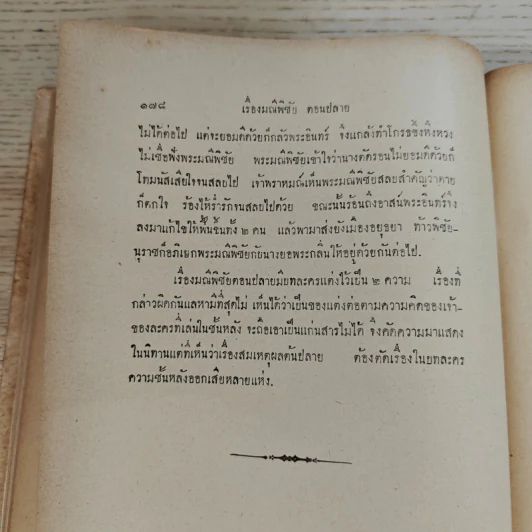 ๑๗๘ เรื่องมณีพิชัย ตอนปลาย
ไม่ได้ต่อไป แต่จะยอมดีด้วยก็กลัวพระอินทร์ จึงแกล้งทำโกรธขึ้งหึงหวง
ไม่เชื่อฟังพระมณีพิชัย พระมณีพิชัยเข้าใจว่านางตัดรอนไม่ยอมดีด้วยก็
โทมนัสเสียใจจนสลบไป เจ้าพราหมณ์เห็นพระมณีพิชัยสลบสำคัญว่าตาย
ก็ตกใจ ร้องไห้ร่ำรักจนสลบไปด้วย ขณะนั้นร้อนถึงอาสน์พระอินทร์จึง
ลงมาแก้ไขให้ฟื้นขึ้นทั้ง ๒ คน แล้วพามาส่งยังเมืองอยุธยา ท้าวพิชัย-
นุราชก็อภิเษกพระมณีพิชัยกับนางยอพระกลิ่นให้อยู่ด้วยกันต่อไป.
เรื่องมณีพิชัยตอนปลายมีบทละครแต่งไว้เป็น ๒ ความ เรื่องที่
กล่าวผิดกันแลหามีที่สุดไม่ เห็นได้ว่าเป็นของแต่งต่อตามความคิดของเจ้า-
ของละครที่เล่นในชั้นหลัง จะถือเอาเป็นแก่นสารไม่ได้ จึงคัดความมาแสดง
ในนิทานแต่ที่เห็นว่าเรื่องสมเหตุผลต้นปลาย ต้องตัดเรื่องในบทละคร
ความชั้นหลังออกเสียหลายแห่ง.